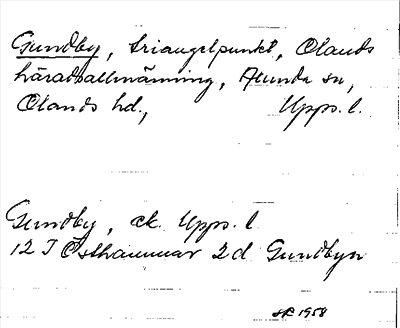 Gundby, triangelpunkt, Olands
häradsallmänning, Alunda sn,
Olands hd., Upps. l.
Gundby, ek. Upps. l
12 I Östhammar 2 d Gundbyn
SR 1958